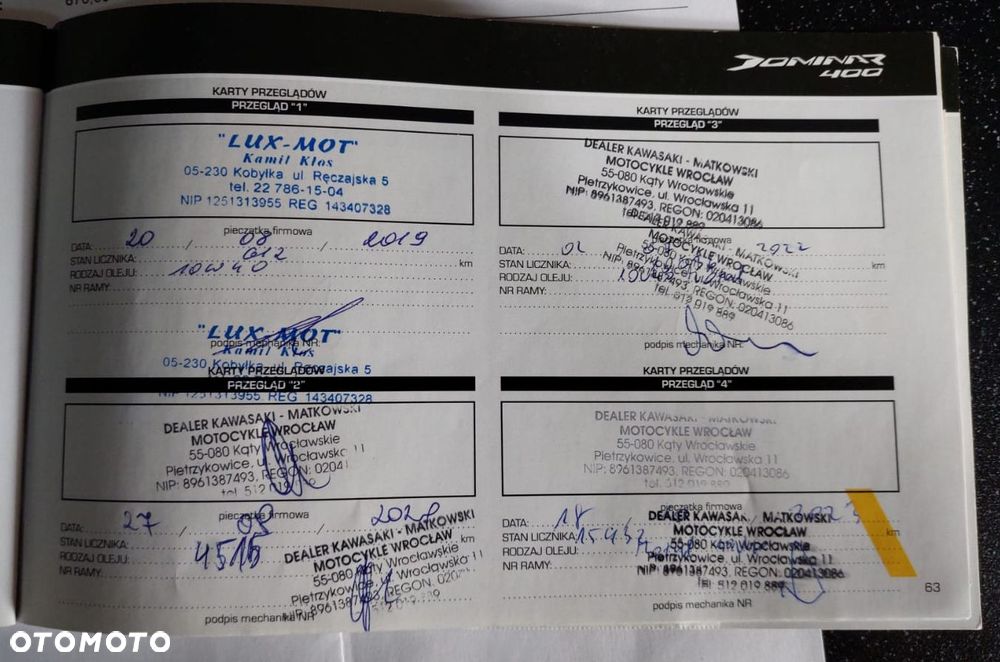 DOMINAR
400
KARTY PRZEGLĄDÓW
PRZEGLĄD "1"
"LUX-MOT"
Kamil Kłos
05-230 Kobyłka ul. Ręczajska 5
tel. 22 786-15-04
NIP 1251313955 REG 143407328
pieczątka firmowa
DATA: 20 / 08 / 2019
STAN LICZNIKA: 612 km
RODZAJ OLEJU: 10W40
NR RAMY:
"LUX-MOT"
Kamil Kłos
podpis mechanika NR:
05-230 Kobyłka ul. Ręczajska 5
NIP 1251313955 REG 143407328
KARTY PRZEGLĄDÓW
PRZEGLĄD "2"
DEALER KAWASAKI - MATKOWSKI
MOTOCYKLE WROCŁAW
55-080 Kąty Wrocławskie
Pietrzykowice, ul. Wrocławska 11
NIP: 8961387493, REGON: 02041
tel. 512 019 88
pieczątka firmowa
DATA: 27 / 05 /
STAN LICZNIKA: 4515 km
RODZAJ OLEJU:
NR RAMY:
DEALER KAWASAKI - MATKOWSKI
MOTOCYKLE WROCŁAW
55-080 Kąty Wrocławskie
Pietrzykowice, ul. Wrocławska
NIP: 8961387493, REGON: 020
podpis mechanika NR
KARTY PRZEGLĄDÓW
PRZEGLĄD "3"
DEALER KAWASAKI - MATKOWSKI
MOTOCYKLE WROCŁAW
55-080 Kąty Wrocławskie
Pietrzykowice, ul. Wrocławska 11
NIP: 8961387493, REGON: 020413086
tel. 512 019 889
pieczątka firmowa
DEALER KAWASAKI - MATKOWSKI
MOTOCYKLE WROCŁAW
55-080 Kąty Wrocławskie
Pietrzykowice, ul. Wrocławska 11
NIP: 8961387493, REGON: 020413086
tel. 512 019 889
DATA: 02 2022
STAN LICZNIKA: km
RODZAJ OLEJU:
NR RAMY:
podpis mechanika NR:
KARTY PRZEGLĄDÓW
PRZEGLĄD "4"
DEALER KAWASAKI - MATKOWSKI
MOTOCYKLE WROCŁAW
55-080 Kąty Wrocławskie
Pietrzykowice, ul. Wrocławska 11
NIP: 8961387493, REGON: 020413086
tel. 512 019 889
pieczątka firmowa
DATA: 18 2023
STAN LICZNIKA: 15457 km
RODZAJ OLEJU:
NR RAMY:
DEALER KAWASAKI - MATKOWSKI
MOTOCYKLE WROCŁAW
55-080 Kąty Wrocławskie
Pietrzykowice, ul. Wrocławska 11
NIP: 8961387493, REGON: 020413086
tel. 512 019 889
podpis mechanika NR
63
OTOMOTO